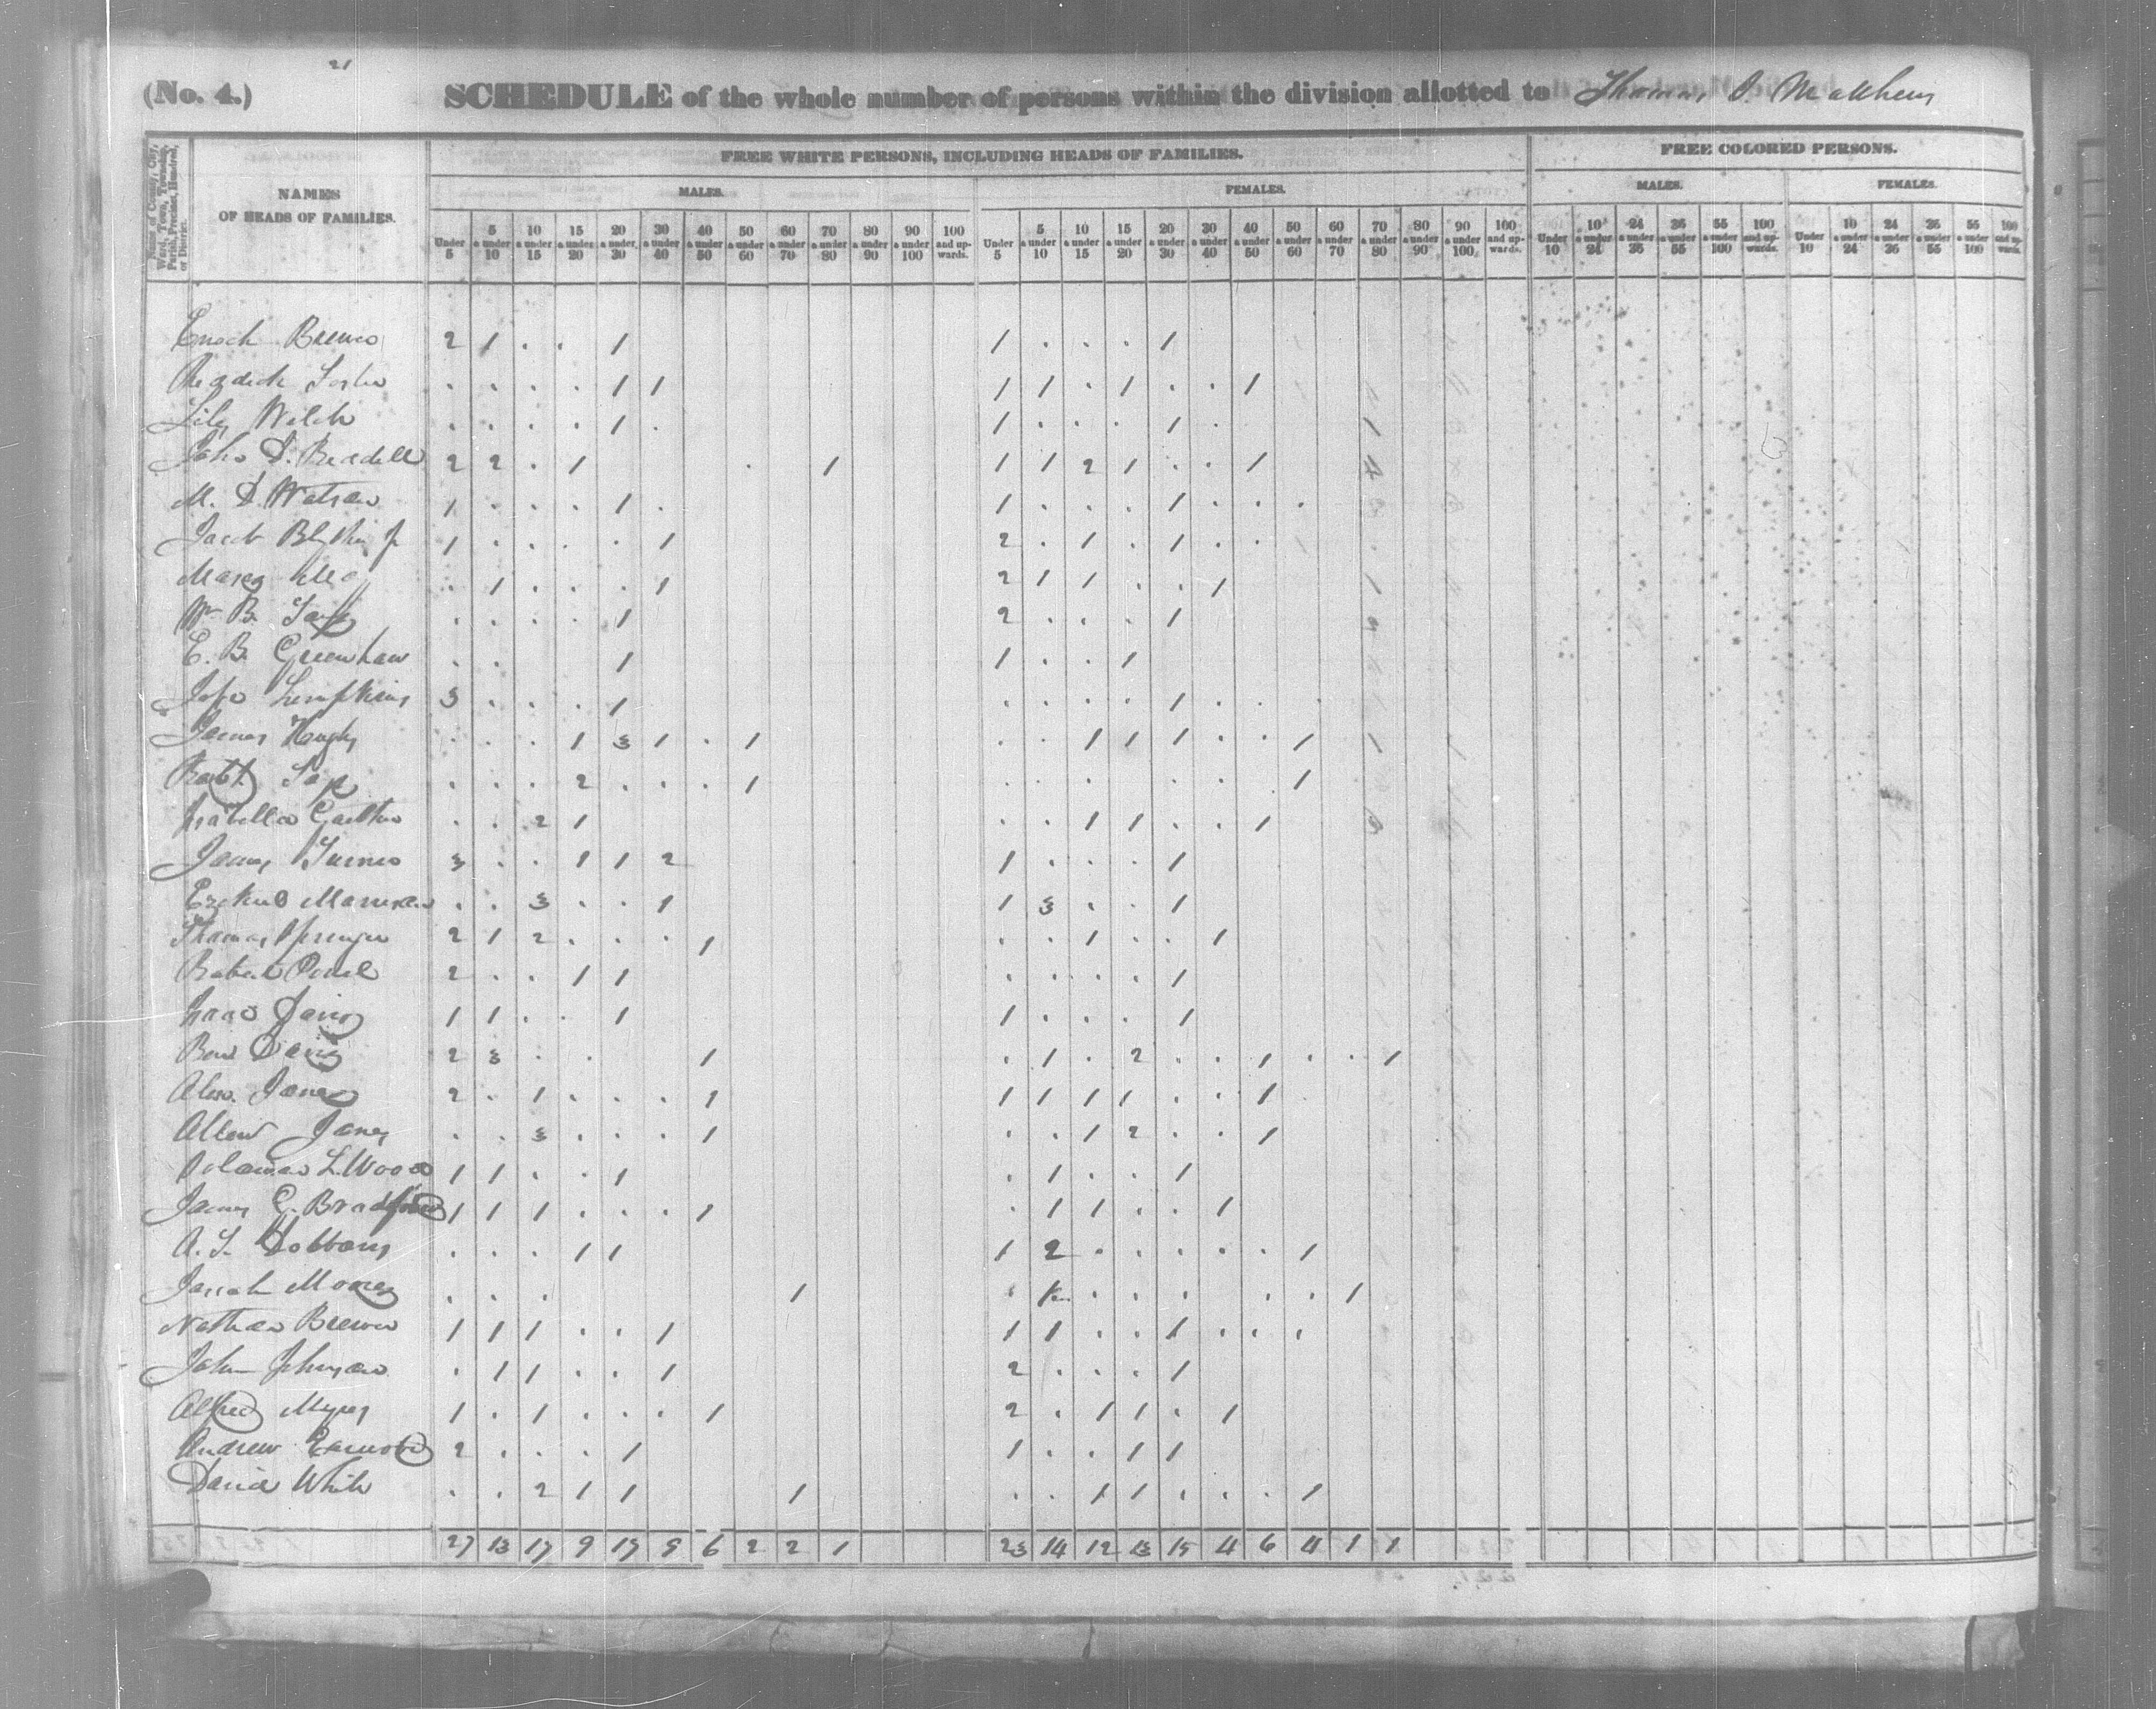 21
(No. 4.) SCHEDULE of the whole number of persons within the division allotted to Thomas J. Matthews
Name of County, City, Ward, Town, Township, Parish, Precinct, Hundred, or District.
NAMES OF HEADS OF FAMILIES.
FREE WHITE PERSONS, INCLUDING HEADS OF FAMILIES.
FREE COLORED PERSONS.
MALES. FEMALES. MALES. FEMALES.
Under 5 5 & under 10 10 & under 15 15 & under 20 20 & under 30 30 & under 40 40 & under 50 50 & under 60 60 & under 70 70 & under 80 80 & under 90 90 & under 100 100 and upwards.
Under 5 5 & under 10 10 & under 15 15 & under 20 20 & under 30 30 & under 40 40 & under 50 50 & under 60 60 & under 70 70 & under 80 80 & under 90 90 & under 100 100 and upwards.
Under 10 10 & under 24 24 & under 36 36 & under 55 55 & under 100 100 and upwards.
Under 10 10 & under 24 24 & under 36 36 & under 55 55 & under 100 100 and upwards.
Enoch 2 1 . . 1 1 . . . 1
. . . . 1 1 1 1 . 1 . . 1
. . . . 1 . 1 . . . 1 .
John D. 2 2 . 1 . 1 1 1 2 1 . . 1
M. D. Watson 1 . . . 1 . 1 . . . 1 . . .
Jacob Blythe Jr 1 . . . . 1 2 . 1 . 1 . .
. 1 . . . 1 2 1 1 . . 1
Wm B. . . . . 1 2 . . . 1
E. B. Greenhaw . . 1 1 . . 1
Lumpkins 3 . . . 1 . . . . 1 . .
James . . . 1 3 1 . 1 . . 1 1 1 . . 1
. . . 2 . . . 1 . . . . . . 1
Isabella . . 2 1 . . 1 1 . . 1
James Turner 3 . . 1 1 2 1 . . . 1
Ezekiel . . 3 . . 1 1 3 . . 1
Thomas Springer 2 1 2 . . . 1 . . 1 . . 1
Robert 2 . . 1 1 . . . . 1
Isaac Davis 1 1 . . 1 1 . . . 1
Benj Davis 2 3 . . 1 . 1 . 2 . . 1 . . 1
Alex. Jones 2 . 1 . . . 1 1 1 1 1 . . 1
Allen Jones . . 3 . . . 1 . . 1 2 . . 1
Solomon L. Wood 1 1 . . 1 . 1 . . 1
James C. Bradford 1 1 1 . . . 1 . 1 1 . . 1
A. S. Dobbins . . . 1 1 1 2 . . . . . 1
Moore . . . 1 . 1 . . . . . 1
Nathan Brewer 1 1 1 . . 1 1 1 . . 1 . . .
John Johnson . 1 1 . . 1 2 . . . 1
Alfred Myers 1 . 1 . . . 1 2 . 1 1 . 1
Andrew 2 . . . 1 1 . . 1 1
David White . . 2 1 1 1 . . 1 1 . . . 1
27 13 17 9 17 9 6 2 2 1 23 14 12 13 15 4 6 4 1 1